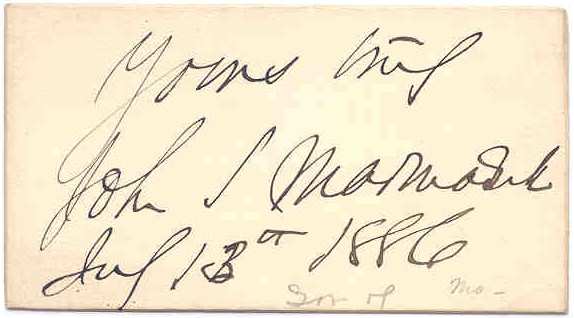 Yours truly
John S Marmaduke
July 13th 1886
Gov of Mo-